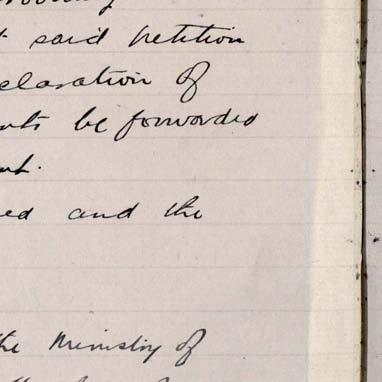 said petition
claration of
nts be forwarded
ed and the
the Ministry of